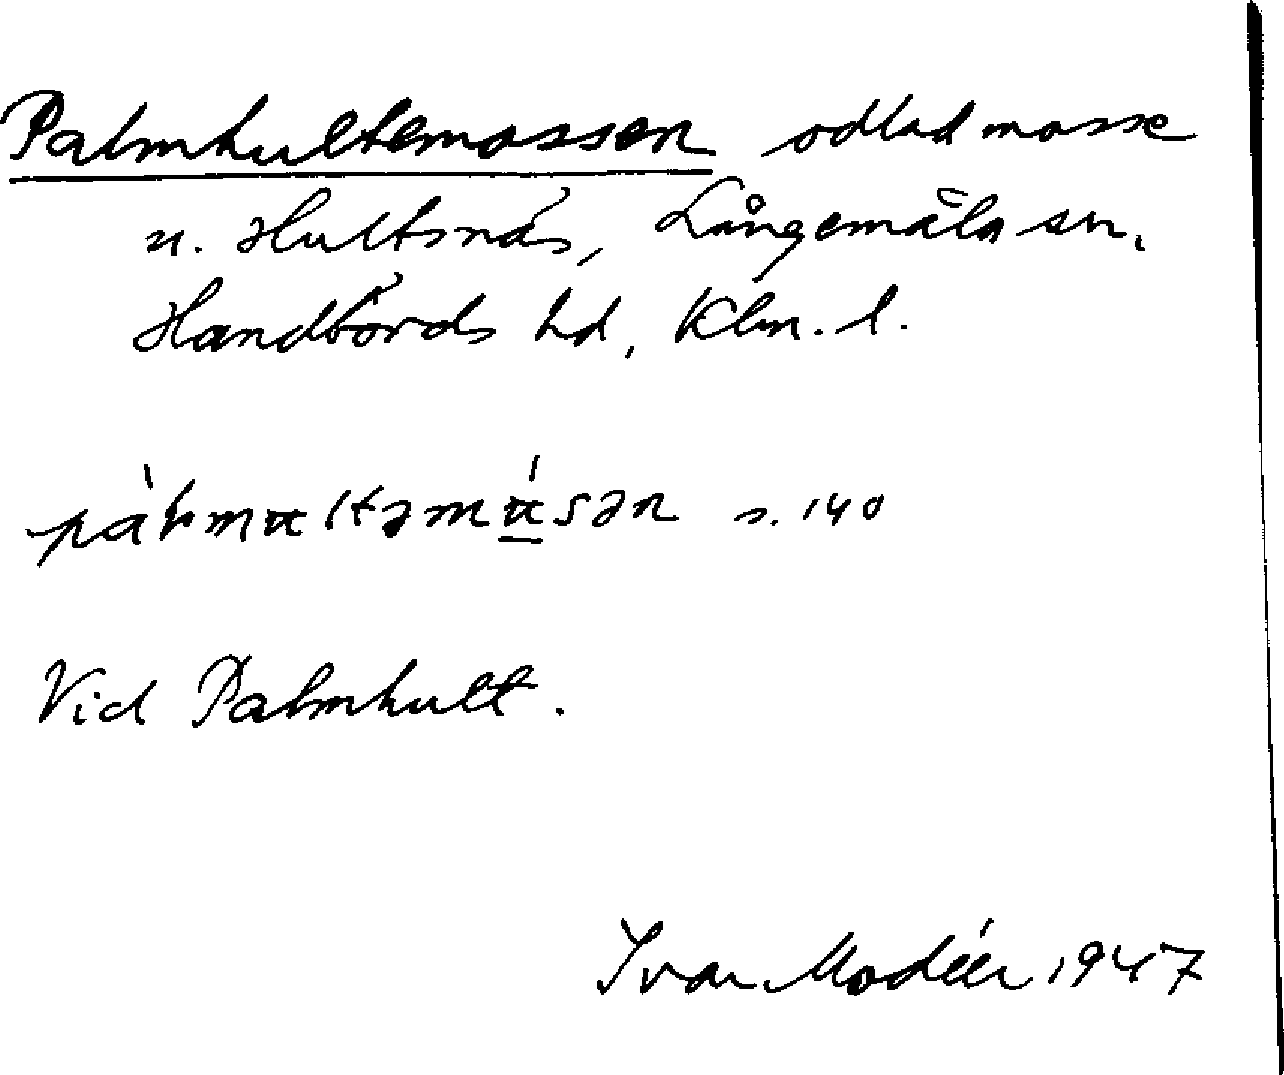 Palmhultemossen odlad mosse
u. Hultsnäs, Långemåla sn,
Handbörds hd, Klm. l.
s. 140
Vid Palmhult.
Ivar Modéer 1947